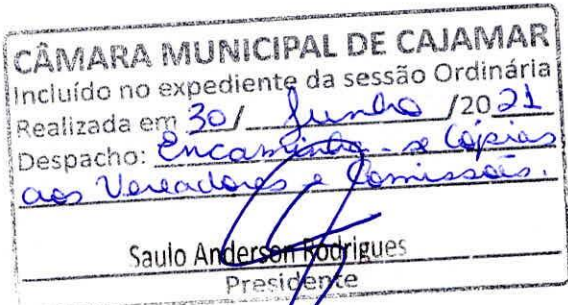 CÂMARA MUNICIPAL DE CAJAMAR
Incluído no expediente da sessão Ordinária
Realizada em 30/ Junho /2021
Despacho: Encaminha-se Cópias
aos Vereadores e Comissões.
Saulo Anderson Rodrigues
Presidente